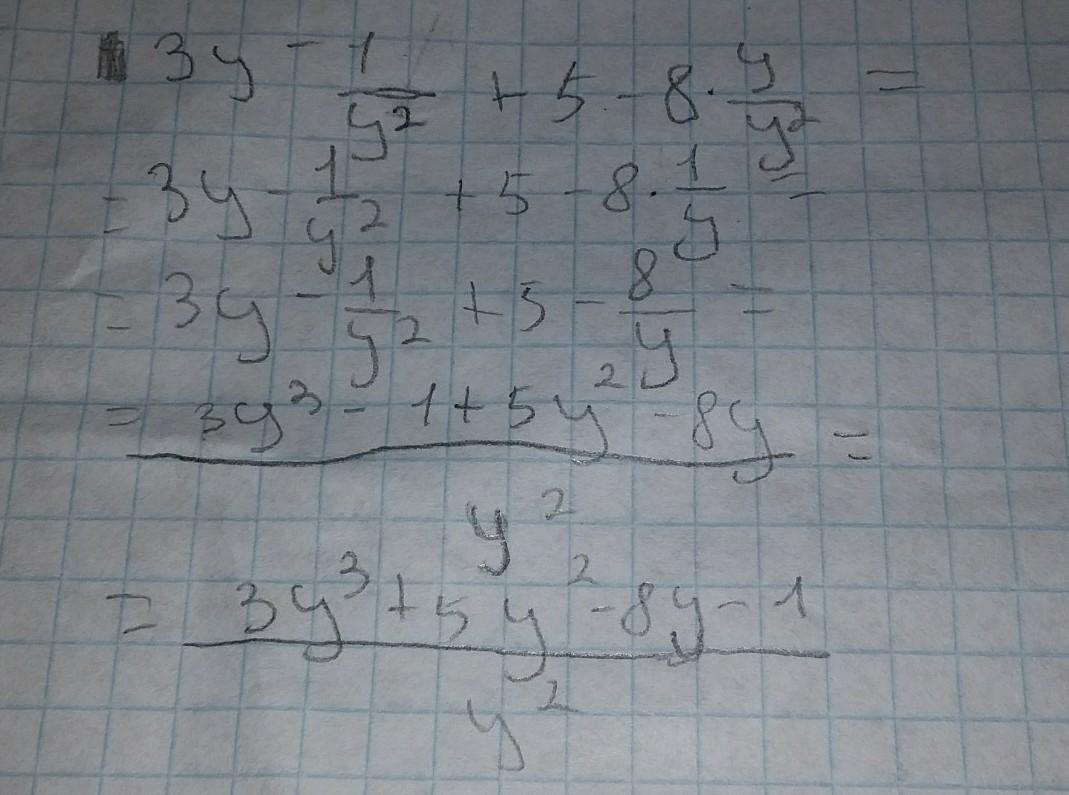 3y - 1/y² + 5 - 8 · y/y² =
= 3y - 1/y² + 5 - 8 · 1/y =
= 3y - 1/y² + 5 - 8/y =
= (3y³ - 1 + 5y² - 8y)/y² =
= (3y³ + 5y² - 8y - 1)/y²